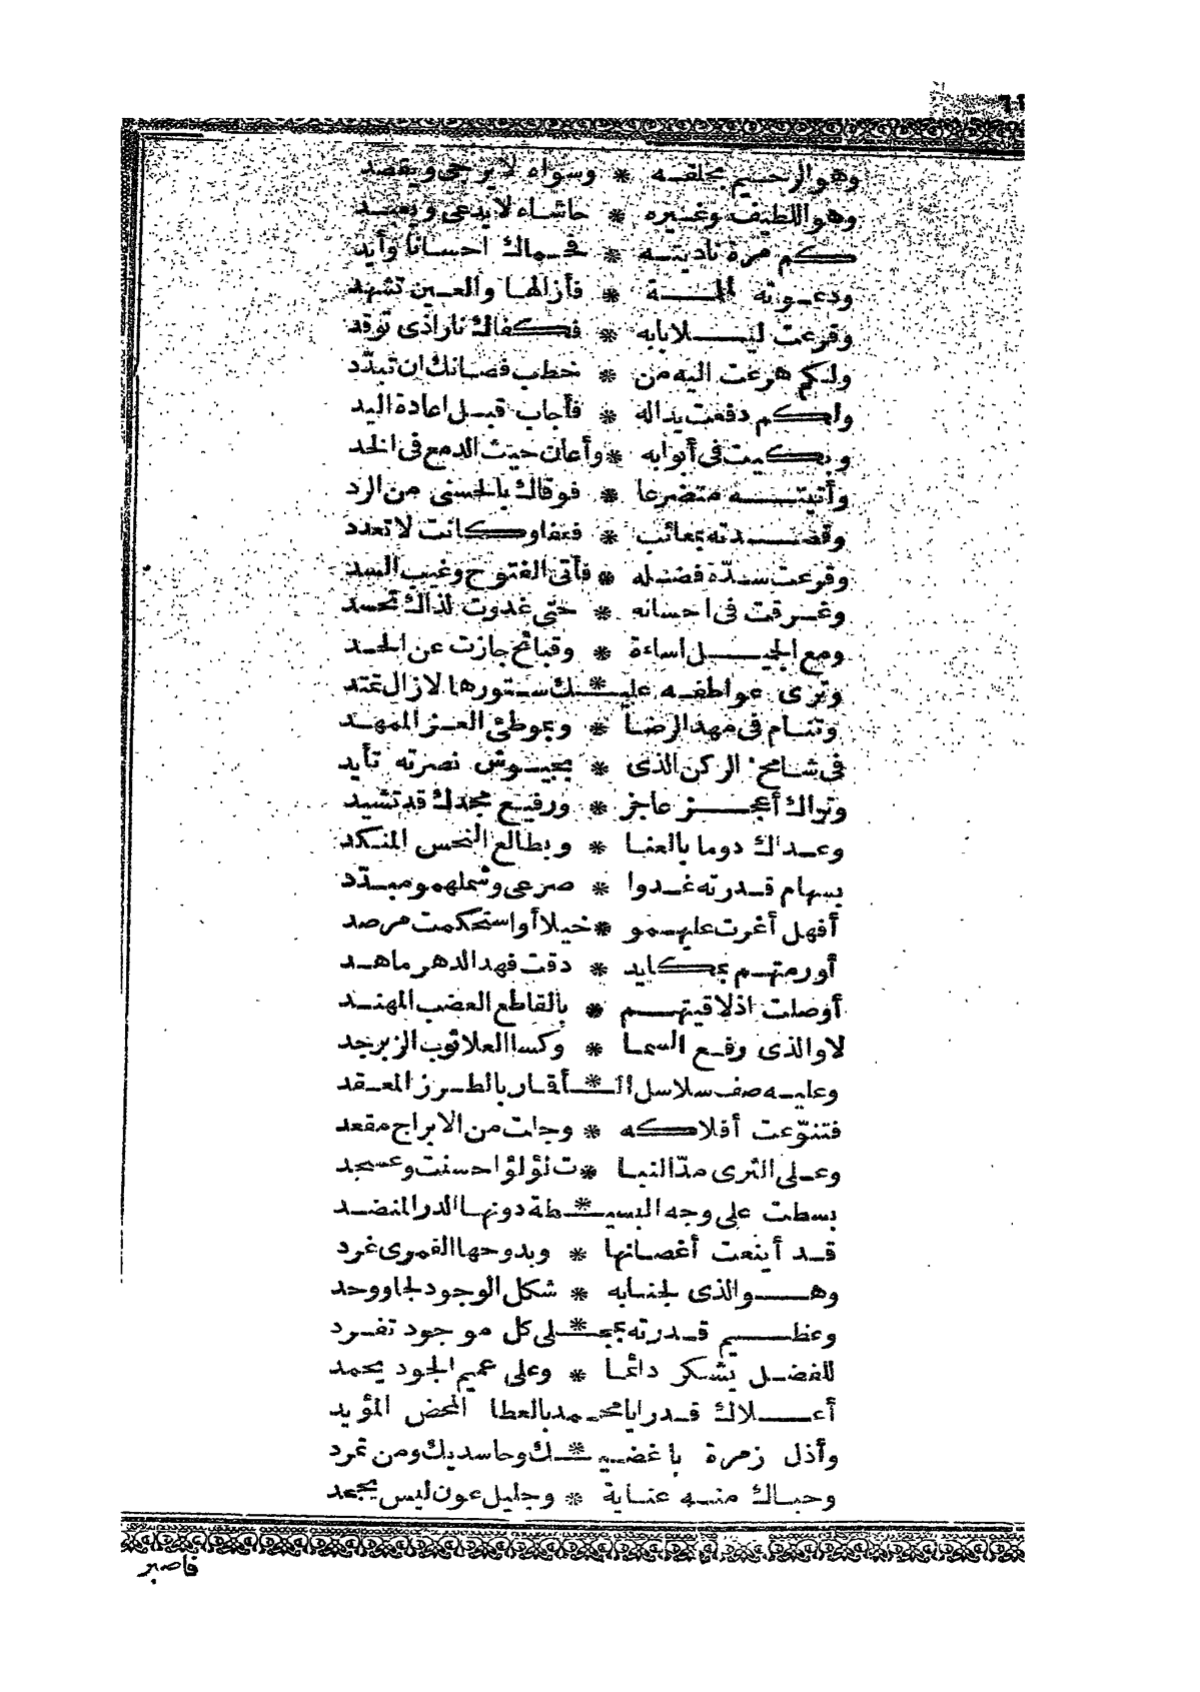 وهو الرحيم بخلقه * وسواه لا يرجى ويقصد
وهو اللطيف وغيره * حاشاه لا يدعى ويعبد
كم مرة ناديته * فحماك احسانا وأيد
ودعوته لملمة * فأزالها والعين تشهد
وقرعت ليلا بابه * فكفاك نار اذى توقد
ولكم هرعت اليه من * خطب فصانك ان تبدّد
ولكم دفعت يدا له * فأجاب قبل اعادة اليد
وبكيت فى أبوابه * وأعان حيث الدمع فى الخد
وأتيته متضرعا * فوقاك بالحسنى من الرد
وقصدته بمعائب * فعفا وكانت لا تعدد
وقرعت سدّة فضله * فأتى الفتوح وغيب السد
وغرقت فى احسانه * حتى غدوت لذاك تحسد
ومع الجميل اساءة * وقبائح جازت عن الحد
وترى عواطفه عليـ * ـك ستورها لا زال تمتد
وتنام فى مهد الرضا * وبموطئ العز الممهد
فى شامخ الركن الذى * بجيوش نصرته تأيد
وتراك أعجز عاجز * ورفيع مجدك قد تشيد
وعداك دوما بالعنا * وبطالع النحس المنكد
بسهام قدرته غدوا * صرعى وشملهمو مبدّد
أفهل أغرت عليهمو * خيلا أو استحكمت مرصد
أو رمتهم بمكايد * دقت فهد الدهر ما هد
أوصلت اذ لاقيتهم * بالقاطع العضب المهند
لا والذى رفع السما * وكسا العلا ثوب الزبرجد
وعليه صف سلاسل الـ * أقمار بالطرز المعقد
فتنوّعت أفلاكه * وجلت من الابراج مقعد
وعلى الثرى مدّ النبا * ت لؤلؤا حسنت وعسجد
بسطت على وجه البسيـ * ـطة دونها الدر المنضد
قد أينعت أغصانها * وبدوحها القمرى غرد
وهو الذى لجنابه * شكل الوجود لجا ووحد
وعظيم قدرته بمجـ * ـلى كل موجود تفرد
للفضل يشكر دائما * وعلى عميم الجود يحمد
أعلاك قدرا يا محمد بالعطا المحض المؤيد
وأذل زمرة باغضيـ * ـك وحاسديك ومن تمرد
وحباك منه عناية * وجليل عون ليس يجحد
فاصبر